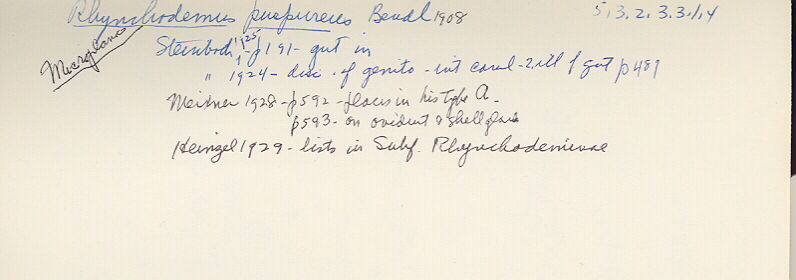 Rhynchodemus purpureus Bendl 1908 5,3.2,3.3.1,4
Microplana
Steinböck 1925 - p191 - gut in
" 1924 - disc. of genito-int canal - & ill of gut p489
Meixner 1928 - p592 - places in his type A -
p593 - on oviduct & shell glands
Heinzel 1929 - lists in Subf. Rhynchodeminae